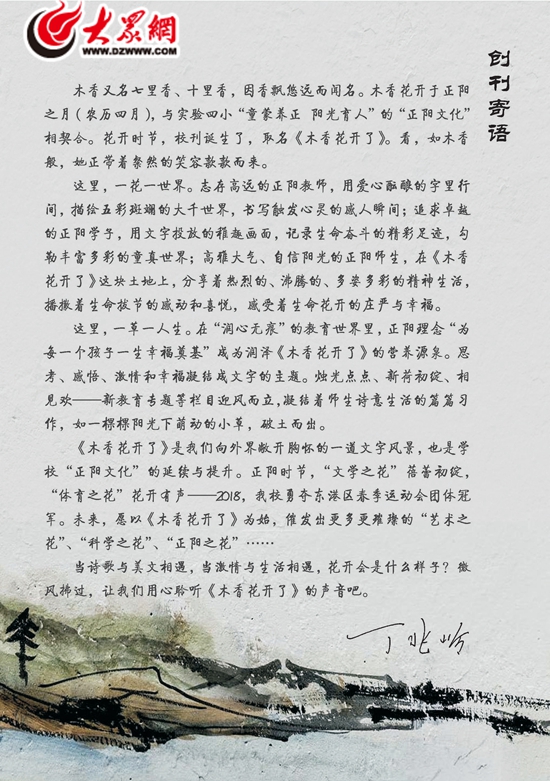 大众網
WWW.DZWWW.COM
创刊寄语
木香又名七里香、十里香，因香飘悠远而闻名。木香花开于正阳
之月（农历四月），与实验四小“童蒙养正 阳光育人”的“正阳文化”
相契合。花开时节，校刊诞生了，取名《木香花开了》。看，如木香
般，她正带着粲然的笑容款款而来。
这里，一花一世界。志存高远的正阳教师，用爱心酝酿的字里行
间，描绘五彩斑斓的大千世界，书写触发心灵的感人瞬间；追求卓越
的正阳学子，用文字投放的稚趣画面，记录生命奋斗的精彩足迹，勾
勒丰富多彩的童真世界；高雅大气、自信阳光的正阳师生，在《木香
花开了》这块土地上，分享着热烈的、沸腾的、多姿多彩的精神生活，
播撒着生命拔节的感动和喜悦，感受着生命花开的庄严与幸福。
这里，一草一人生。在“润心无痕”的教育世界里，正阳理念“为
每一个孩子一生幸福奠基”成为润泽《木香花开了》的营养源泉。思
考、感悟、激情和幸福凝结成文字的主题。烛光点点、新荷初绽、相
见欢——新教育专题等栏目迎风而立，凝结着师生诗意生活的篇篇习
作，如一棵棵阳光下萌动的小草，破土而出。
《木香花开了》是我们向外界敞开胸怀的一道文字风景，也是学
校“正阳文化”的延续与提升。正阳时节，“文学之花”蓓蕾初绽，
“体育之花”花开有声——2018，我校勇夺东港区春季运动会团体冠
军。未来，愿以《木香花开了》为始，催发出更多更璀璨的“艺术之
花”、“科学之花”、“正阳之花”……
当诗歌与美文相遇，当激情与生活相遇，花开会是什么样子？微
风拂过，让我们用心聆听《木香花开了》的声音吧。
丁兆岭